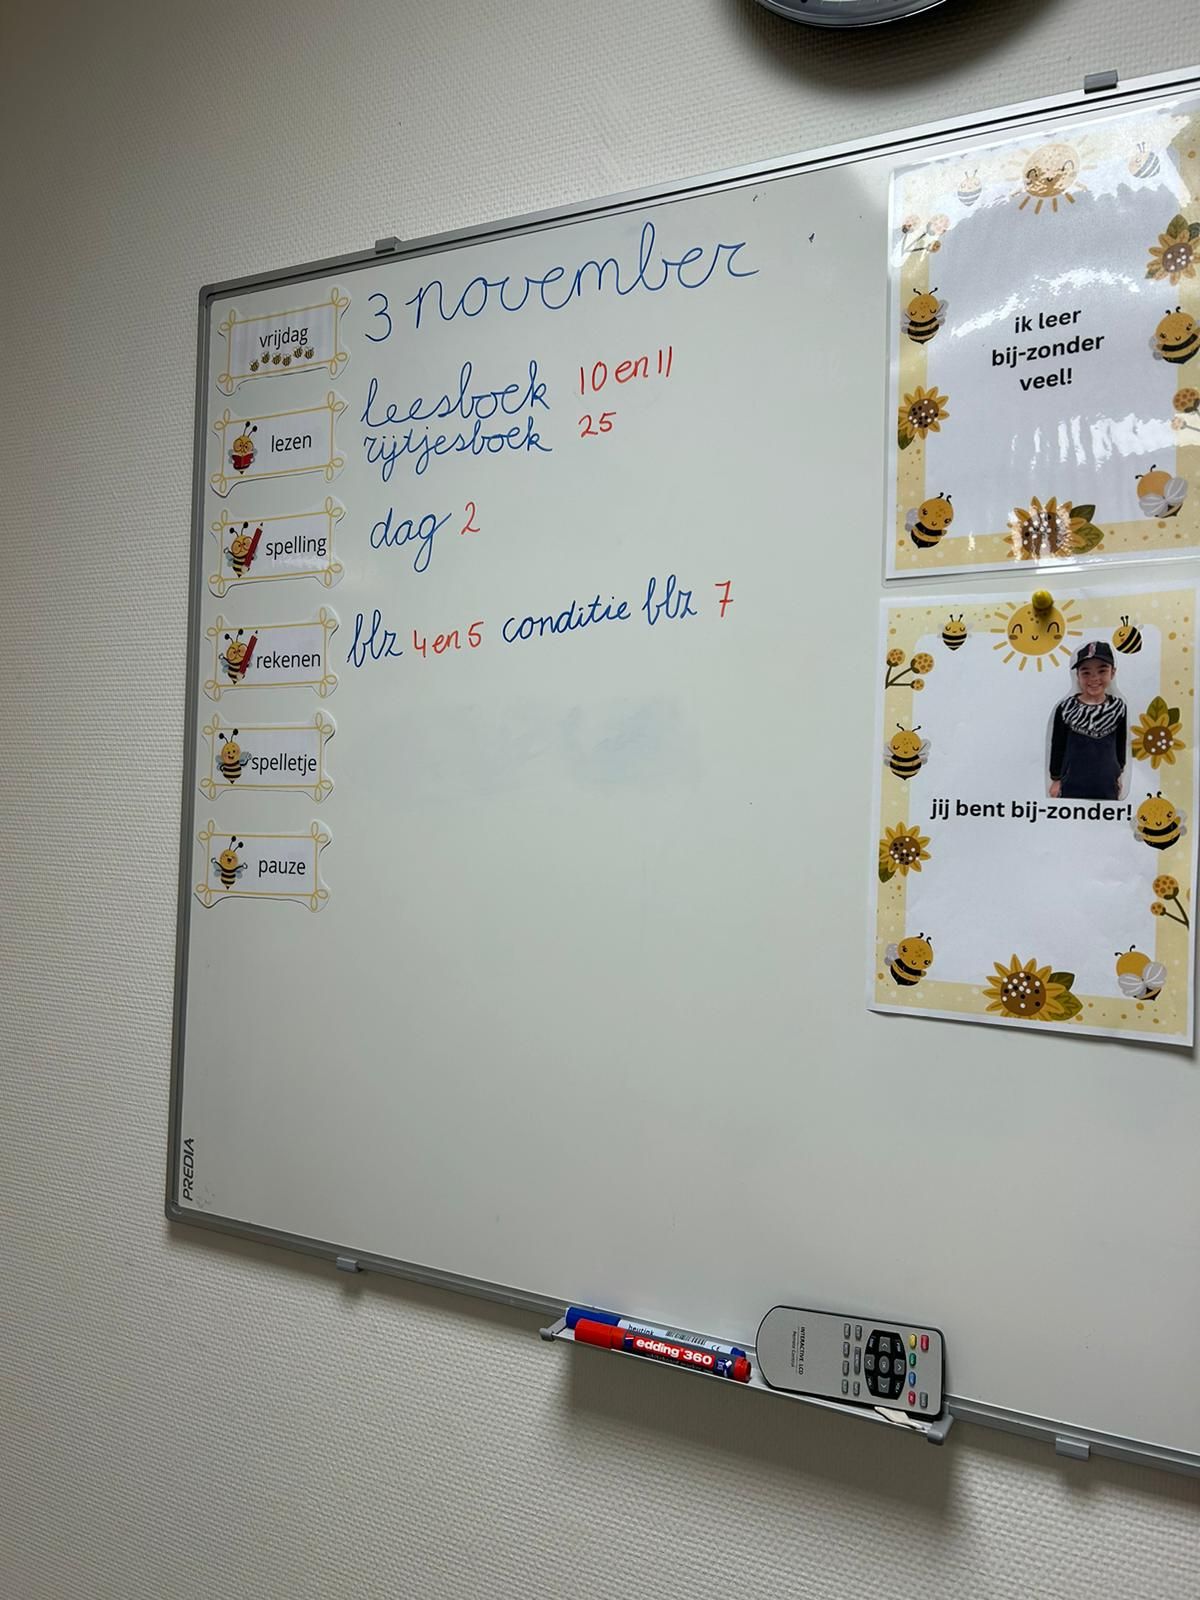 vrijdag
3 november
lezen
leesboek 10 en 11
rijtjesboek 25
spelling
dag 2
rekenen
blz 4 en 5 conditie blz 7
spelletje
pauze
ik leer
bij-zonder
veel!
jij bent bij-zonder!
PREDIA
edding 360
INTERACTIVE LCD
Remote Control